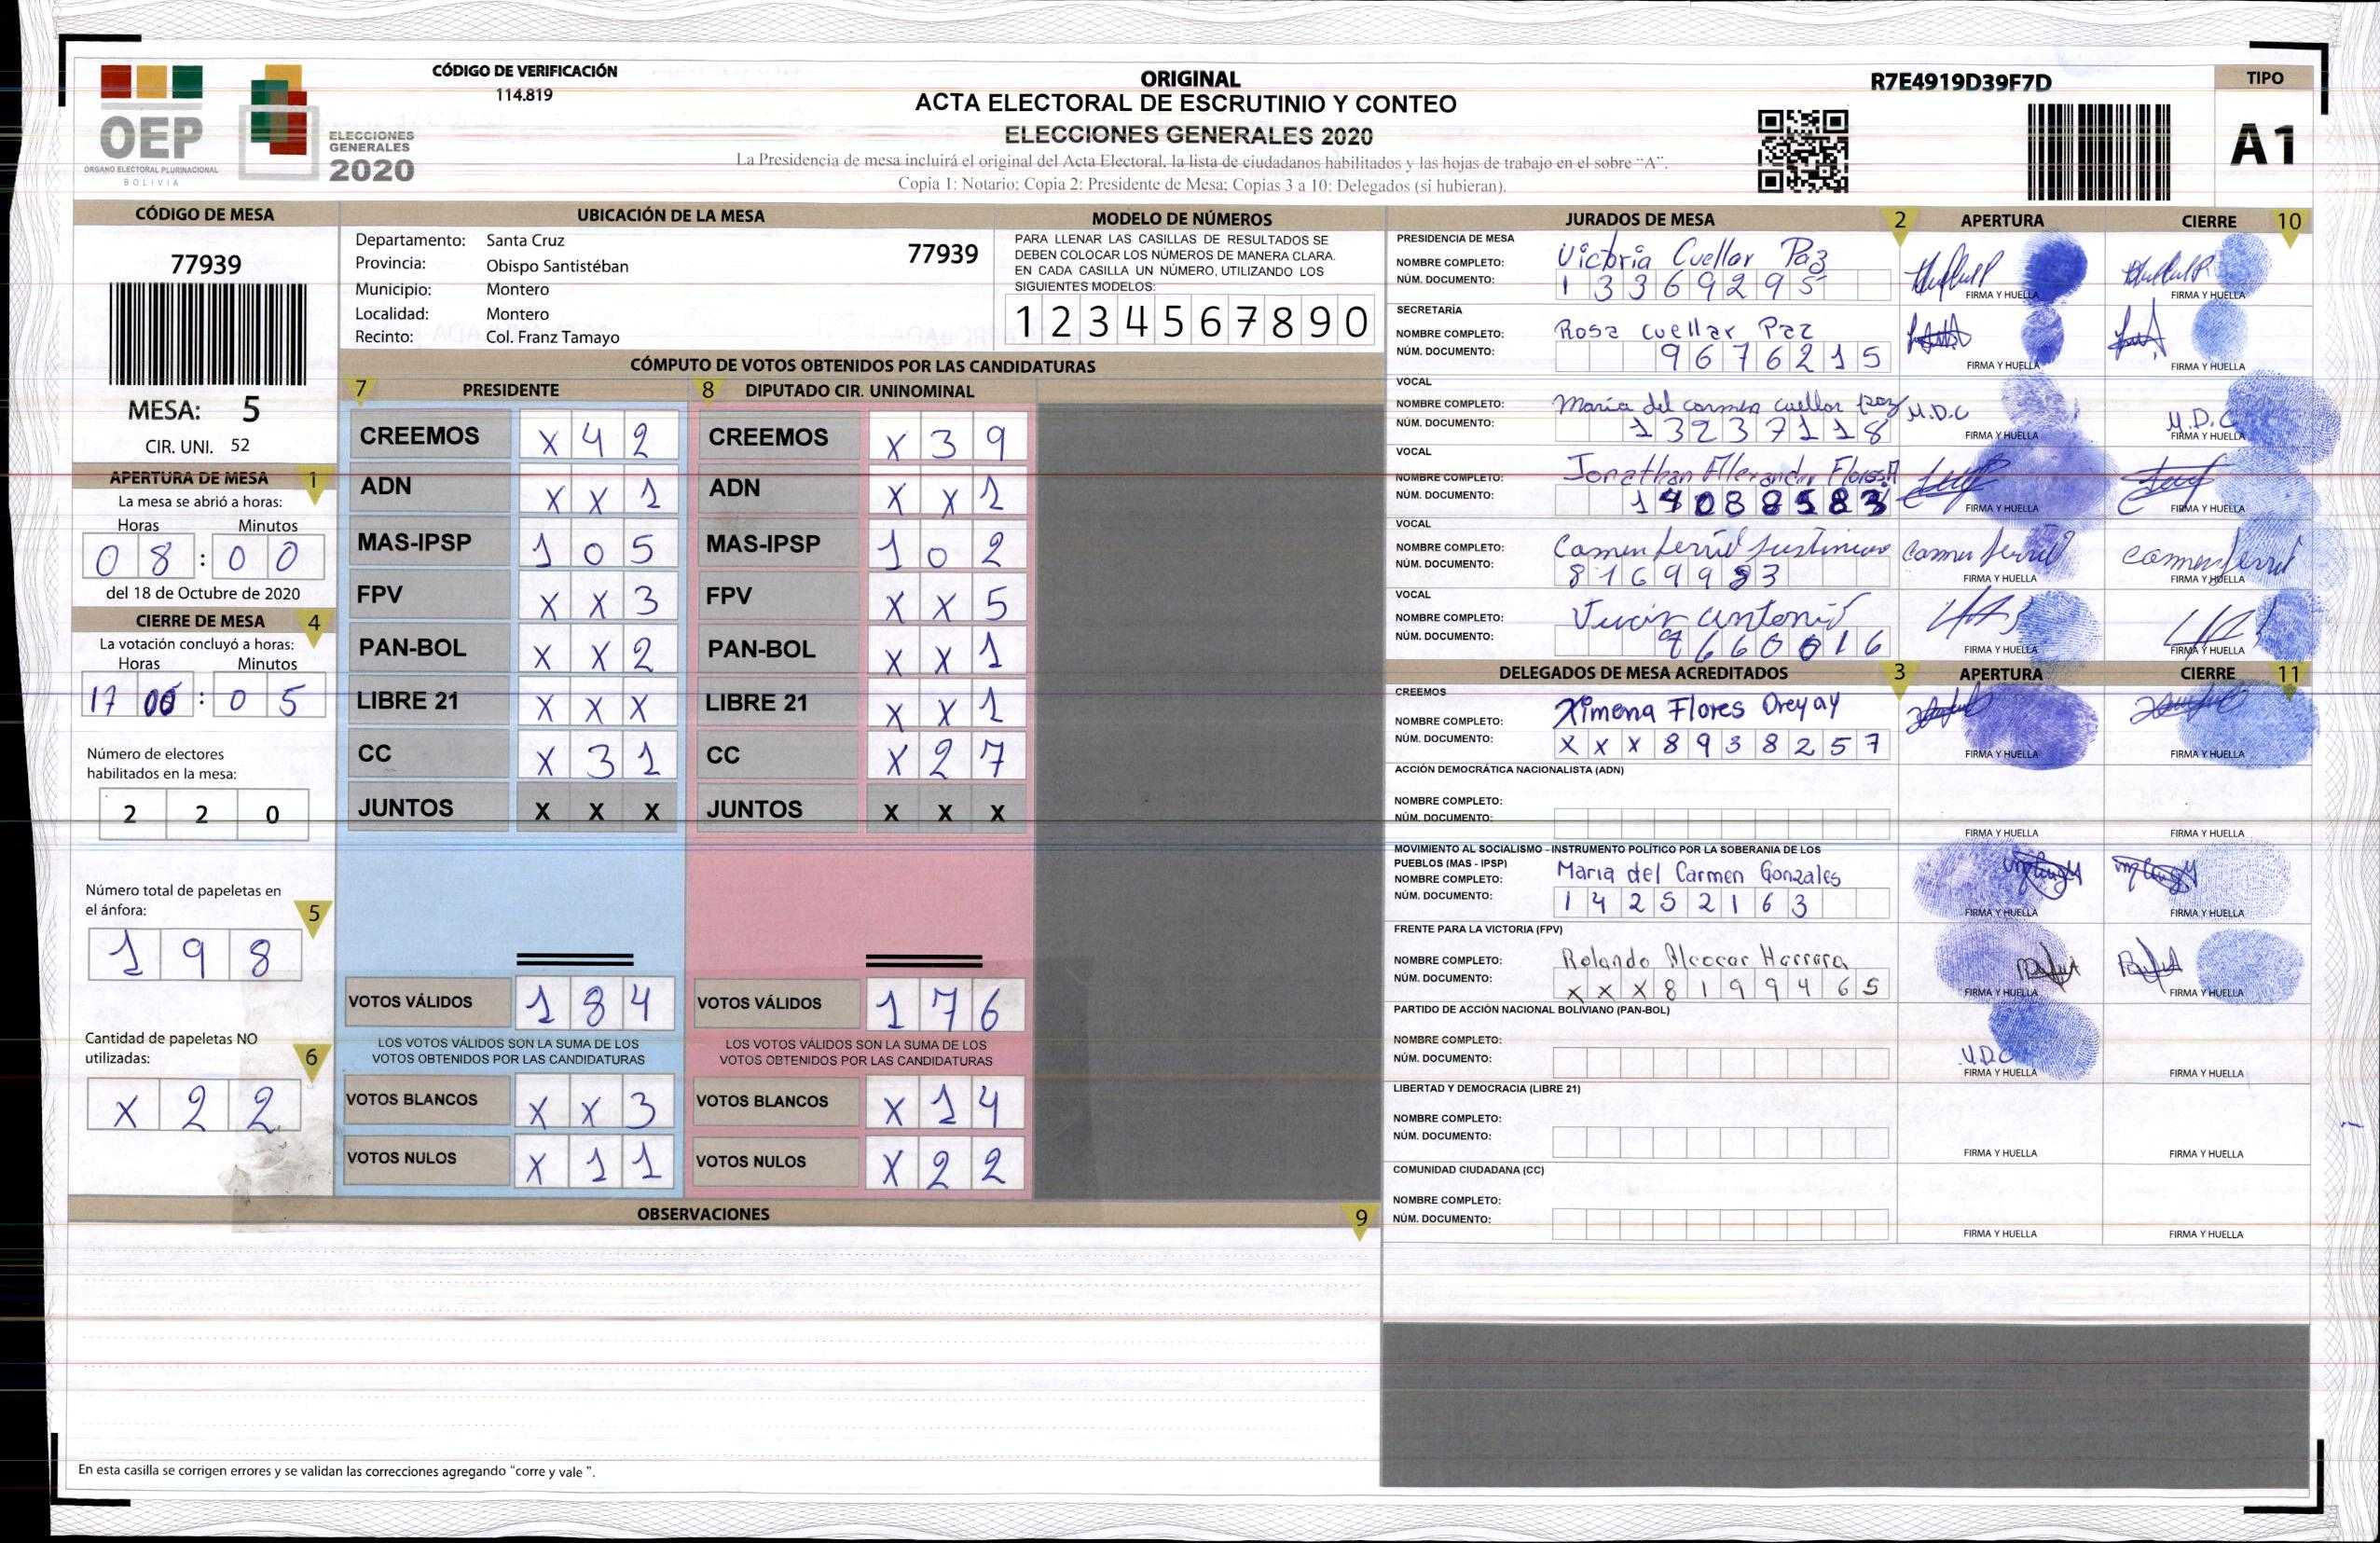 OEP
ÓRGANO ELECTORAL PLURINACIONAL
BOLIVIA
ELECCIONES
GENERALES
2020
CÓDIGO DE VERIFICACIÓN
114.819
ORIGINAL
ACTA ELECTORAL DE ESCRUTINIO Y CONTEO
ELECCIONES GENERALES 2020
La Presidencia de mesa incluirá el original del Acta Electoral, la lista de ciudadanos habilitados y las hojas de trabajo en el sobre "A".
Copia 1: Notario; Copia 2: Presidente de Mesa; Copias 3 a 10: Delegados (si hubieran).
R7E4919D39F7D
TIPO
A1
CÓDIGO DE MESA
77939
MESA: 5
CIR. UNI. 52
UBICACIÓN DE LA MESA
Departamento: Santa Cruz
77939
Provincia: Obispo Santistéban
Municipio: Montero
Localidad: Montero
Recinto: Col. Franz Tamayo
MODELO DE NÚMEROS
PARA LLENAR LAS CASILLAS DE RESULTADOS SE
DEBEN COLOCAR LOS NÚMEROS DE MANERA CLARA.
EN CADA CASILLA UN NÚMERO, UTILIZANDO LOS
SIGUIENTES MODELOS:
1 2 3 4 5 6 7 8 9 0
APERTURA DE MESA 1
La mesa se abrió a horas:
Horas Minutos
0 8 : 0 0
del 18 de Octubre de 2020
CIERRE DE MESA 4
La votación concluyó a horas:
Horas Minutos
17 : 0 5
Número de electores
habilitados en la mesa:
2 2 0
Número total de papeletas en
el ánfora: 5
1 9 8
Cantidad de papeletas NO
utilizadas: 6
X 2 2
CÓMPUTO DE VOTOS OBTENIDOS POR LAS CANDIDATURAS
7 PRESIDENTE
CREEMOS X 4 2
ADN X X 1
MAS-IPSP 1 0 5
FPV X X 3
PAN-BOL X X 2
LIBRE 21 X X X
CC X 3 1
JUNTOS X X X
VOTOS VÁLIDOS 1 8 4
LOS VOTOS VÁLIDOS SON LA SUMA DE LOS
VOTOS OBTENIDOS POR LAS CANDIDATURAS
VOTOS BLANCOS X X 3
VOTOS NULOS X 1 1
8 DIPUTADO CIR. UNINOMINAL
CREEMOS X 3 9
ADN X X 1
MAS-IPSP 1 0 2
FPV X X 5
PAN-BOL X X 1
LIBRE 21 X X 1
CC X 2 7
JUNTOS X X X
VOTOS VÁLIDOS 1 7 6
LOS VOTOS VÁLIDOS SON LA SUMA DE LOS
VOTOS OBTENIDOS POR LAS CANDIDATURAS
VOTOS BLANCOS X 1 4
VOTOS NULOS X 2 2
OBSERVACIONES 9
En esta casilla se corrigen errores y se validan las correcciones agregando "corre y vale ".
JURADOS DE MESA 2 APERTURA CIERRE 10
PRESIDENCIA DE MESA
NOMBRE COMPLETO: Victoria Cuellar Paz
NÚM. DOCUMENTO: 1 3 3 6 9 2 9 5
FIRMA Y HUELLA FIRMA Y HUELLA
SECRETARÍA
NOMBRE COMPLETO: Rosa Cuellar Paz
NÚM. DOCUMENTO: 9 6 7 6 2 1 5
FIRMA Y HUELLA FIRMA Y HUELLA
VOCAL
NOMBRE COMPLETO: Maria del carmen cuellar paz M.D.C M.D.C
NÚM. DOCUMENTO: 1 3 2 3 7 1 1 8
FIRMA Y HUELLA FIRMA Y HUELLA
VOCAL
NOMBRE COMPLETO: Jonathan Flores
NÚM. DOCUMENTO:
FIRMA Y HUELLA FIRMA Y HUELLA
VOCAL
NOMBRE COMPLETO: Justiniano
NÚM. DOCUMENTO:
FIRMA Y HUELLA FIRMA Y HUELLA
VOCAL
NOMBRE COMPLETO: antonio
NÚM. DOCUMENTO:
FIRMA Y HUELLA FIRMA Y HUELLA
DELEGADOS DE MESA ACREDITADOS 3 APERTURA CIERRE 11
CREEMOS
NOMBRE COMPLETO: Ximena Flores Oreyay
NÚM. DOCUMENTO: X X X 8 9 3 8 2 5 7
FIRMA Y HUELLA FIRMA Y HUELLA
ACCIÓN DEMOCRÁTICA NACIONALISTA (ADN)
NOMBRE COMPLETO:
NÚM. DOCUMENTO:
FIRMA Y HUELLA FIRMA Y HUELLA
MOVIMIENTO AL SOCIALISMO - INSTRUMENTO POLÍTICO POR LA SOBERANIA DE LOS
PUEBLOS (MAS - IPSP)
NOMBRE COMPLETO: Maria del Carmen Gonzales
NÚM. DOCUMENTO: 1 4 2 5 2 1 6 3
FIRMA Y HUELLA FIRMA Y HUELLA
FRENTE PARA LA VICTORIA (FPV)
NOMBRE COMPLETO: Rolando Alcocer Herrera
NÚM. DOCUMENTO: X X X 8 1 9 9 4 6 5
FIRMA Y HUELLA FIRMA Y HUELLA
PARTIDO DE ACCIÓN NACIONAL BOLIVIANO (PAN-BOL)
NOMBRE COMPLETO:
NÚM. DOCUMENTO:
FIRMA Y HUELLA FIRMA Y HUELLA
LIBERTAD Y DEMOCRACIA (LIBRE 21)
NOMBRE COMPLETO:
NÚM. DOCUMENTO:
FIRMA Y HUELLA FIRMA Y HUELLA
COMUNIDAD CIUDADANA (CC)
NOMBRE COMPLETO:
NÚM. DOCUMENTO:
FIRMA Y HUELLA FIRMA Y HUELLA